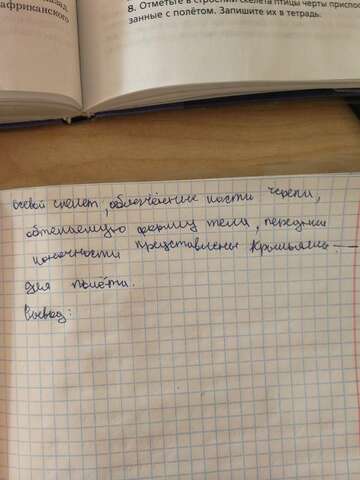 назад
африканского
8. Отметьте в строении скелета птицы черты приспосо
занные с полётом. Запишите их в тетрадь.
осевой скелет, облегчённые кости черепа,
обтекаемую форму тела, передние
конечности представлены крыльями —
для полёта.
Вывод: